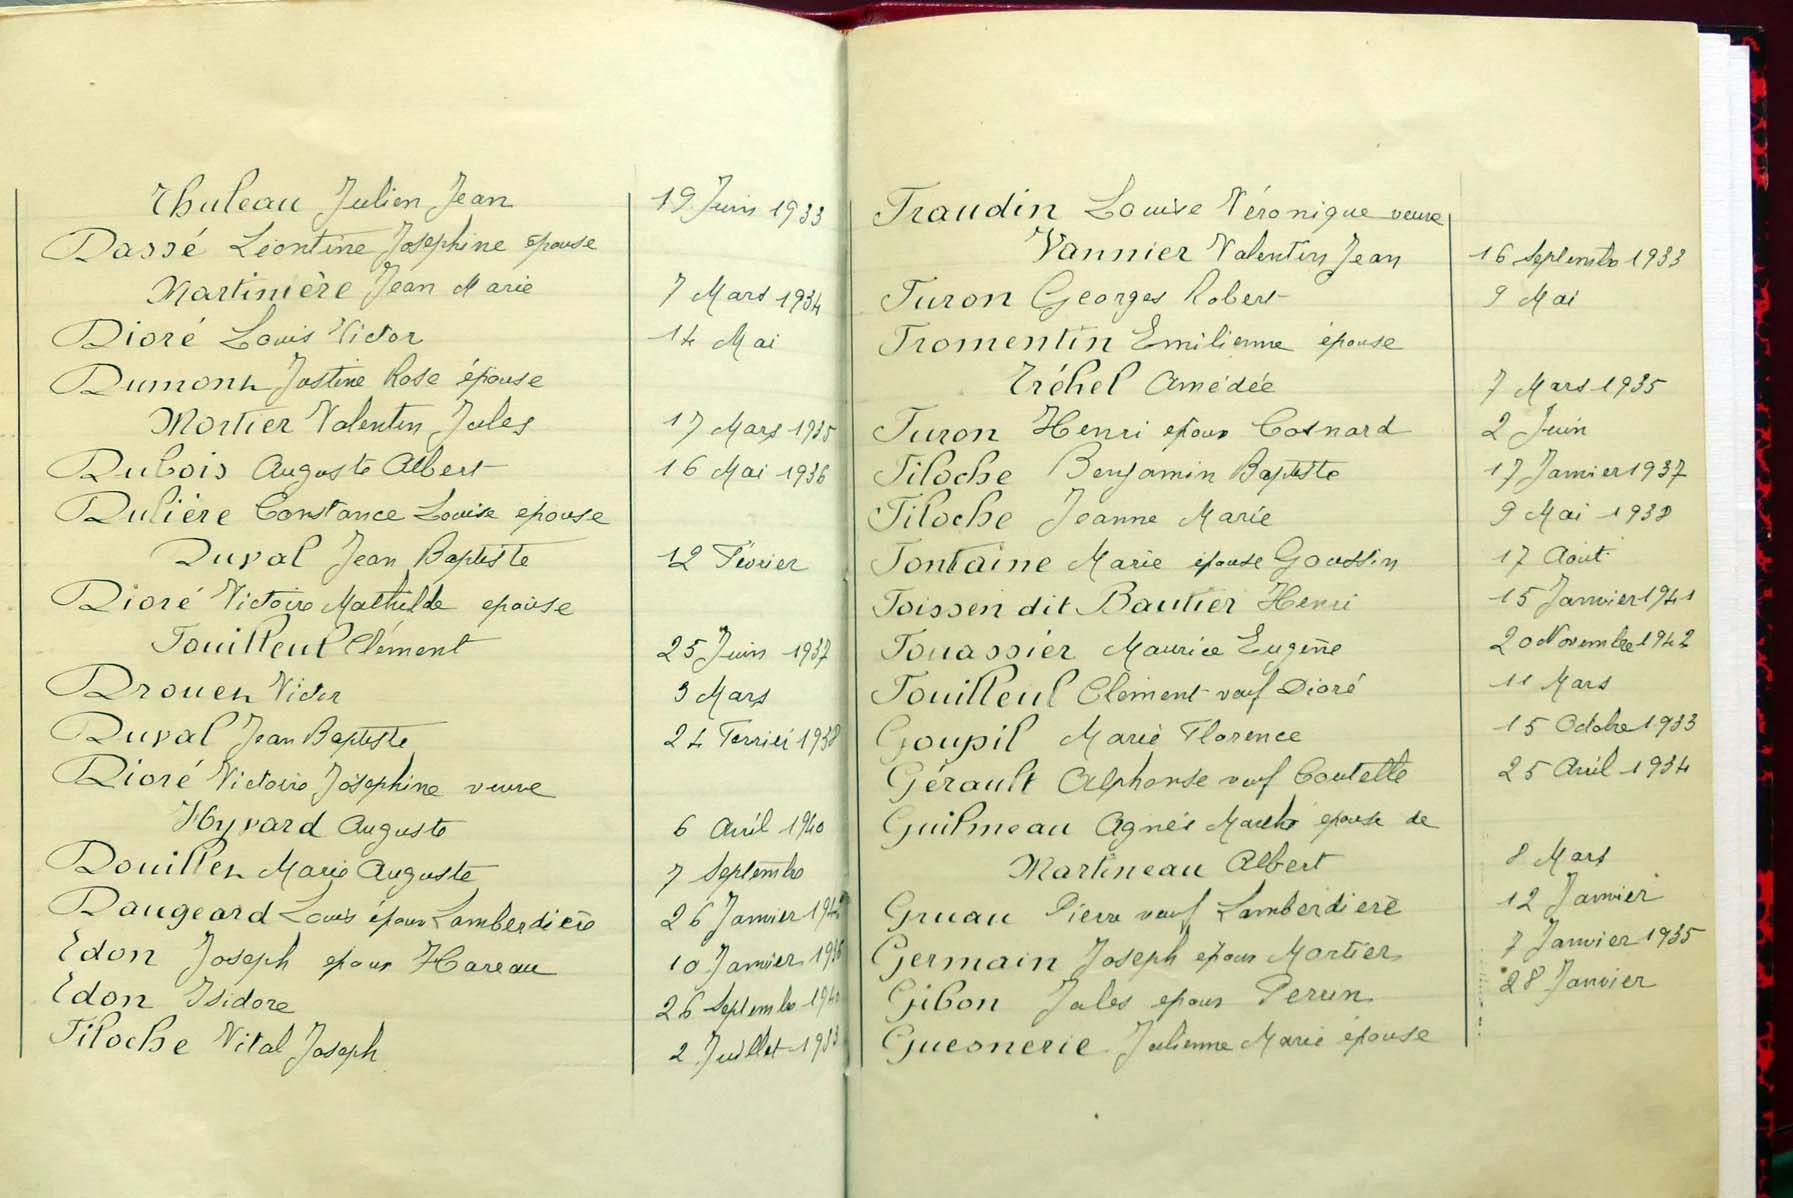 Thuleau Julien Jean 19 Juin 1933
Dassé Léontine Josephine épouse
Martinière Jean Marie 7 Mars 1934
Dioré Louis Victor 14 Mai
Dumont Justine Rose épouse
Mortier Valentin Jules 17 Mars 1935
Dubois Auguste Albert 16 Mai 1936
Dulière Constance Louise epouse
Duval Jean Baptiste 12 Février
Dioré Victoire Mathilde epouse
Fouilleul Clément 25 Juin 1937
Drouet Victor 3 Mars
Duval Jean Baptiste 24 1938
Dioré Victoire Joséphine veuve
Hyvard Auguste 6 Avril 1940
Douillet Marie Auguste 7 Septembre
Daugeard Louis époux Lamberdière 26 Janvier
Edon Joseph epoux Hareau 10 Janvier 1936
Edon Isidore 26 Septembre 1940
Filoche Vital Joseph 2 Juillet 1933
Fraudin Louise Véronique veuve
Vannier Valentin Jean 16 Septembre 1933
Furon Georges Robert 9 Mai
Fromentin Emilienne épouse
Tréhel Amédée 7 Mars 1935
Furon Henri epoux Cosnard 2 Juin
Filoche Benjamin Baptiste 17 Janvier 1937
Filoche Jeanne Marie 9 Mai 1938
Fontaine Marie épouse Goussin 17 Aout
Foissen dit Bautier Henri 15 Janvier 1941
Fouassier Maurice Eugène 20 Novembre 1942
Fouilleul Clément veuf Dioré 11 Mars
Goupil Marie Florence 15 Octobre 1933
Gérault Alphonse veuf Coutelle 25 Avril 1934
Guilmeau Agnès épouse de
Martineau Albert 8 Mars
Gruau Pierre veuf Lamberdière 12 Janvier
Germain Joseph epoux Mortier 7 Janvier 1935
Gibon Jules epoux 28 Janvier
Guesnerie Julienne Marie épouse